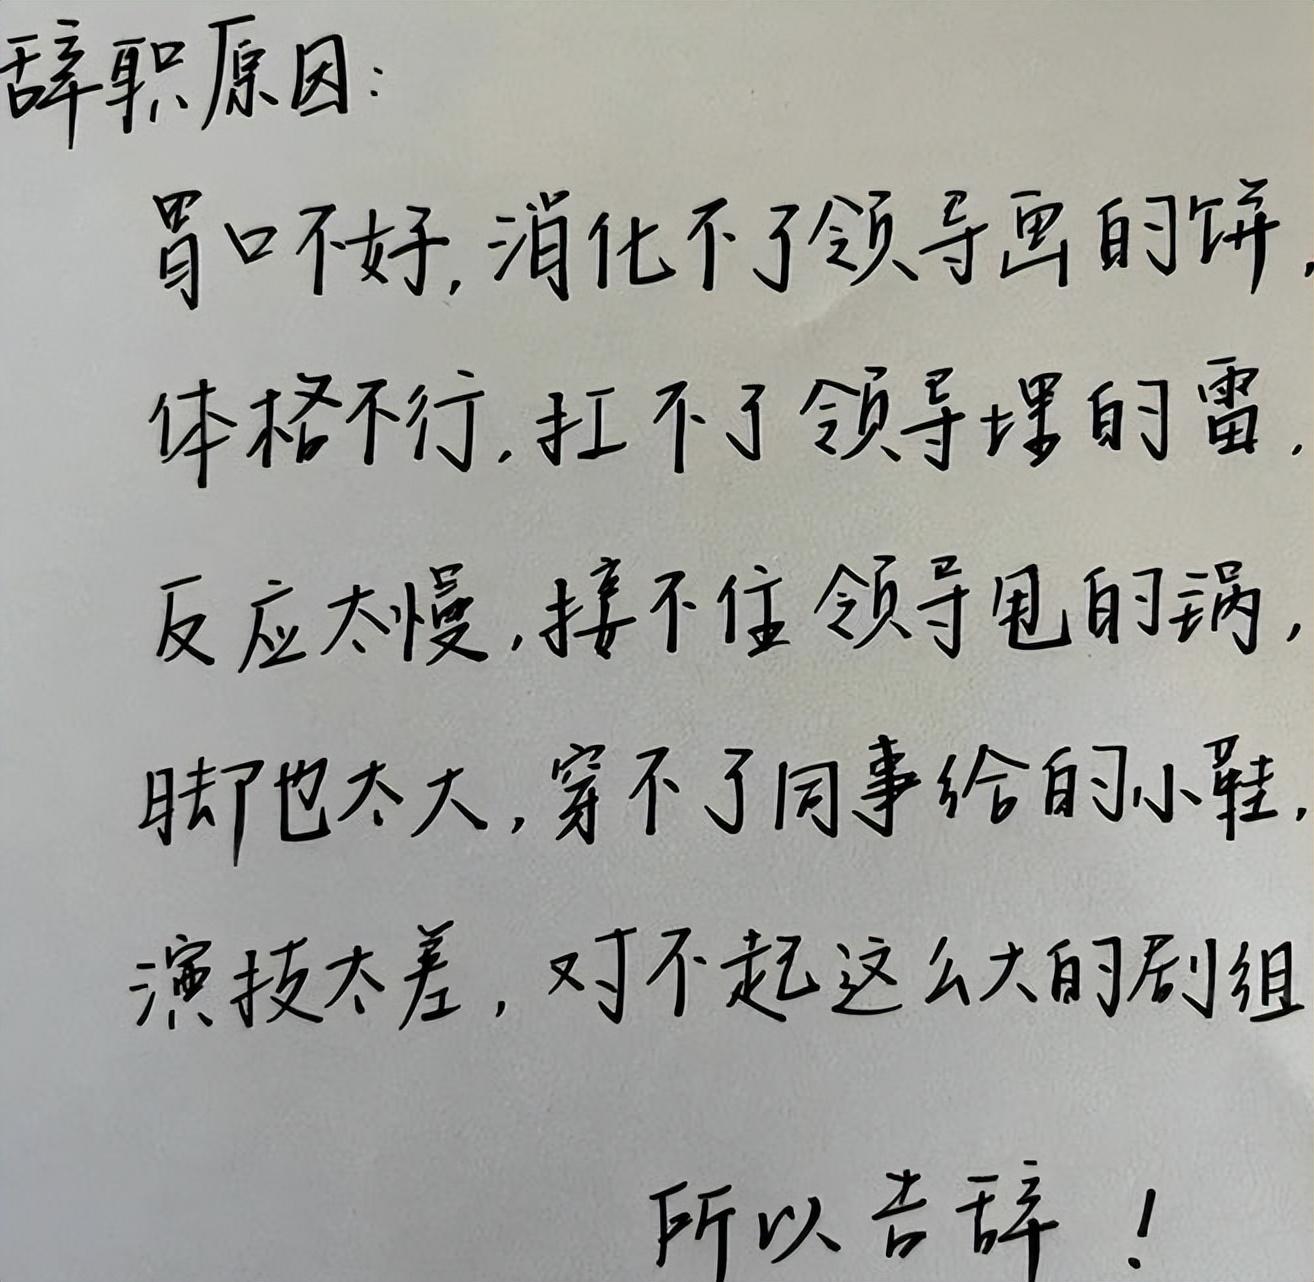 辞职原因:
胃口不好,消化不了领导画的饼,
体格不行,扛不了领导埋的雷,
反应太慢,接不住领导甩的锅,
脚也太大,穿不了同事给的小鞋,
演技太差,对不起这么大的剧组
所以告辞!